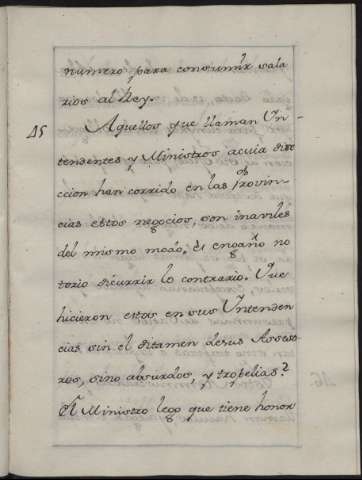 numero para consumir sala
rios al Rey.
45
Aquellos que llaman Yn-
tendentes y Ministros acuia dire
ccion han corrido en las Provin-
cias estos negocios, son inaviles
del mismo modo. Es engaño no
torio discurrir lo contrario. Que
hicieron estos en sus Yntenden
cias sin el dictamen desus Asseso
ros, sino absurdos, y tropelias?
El Ministro lego que tiene honor